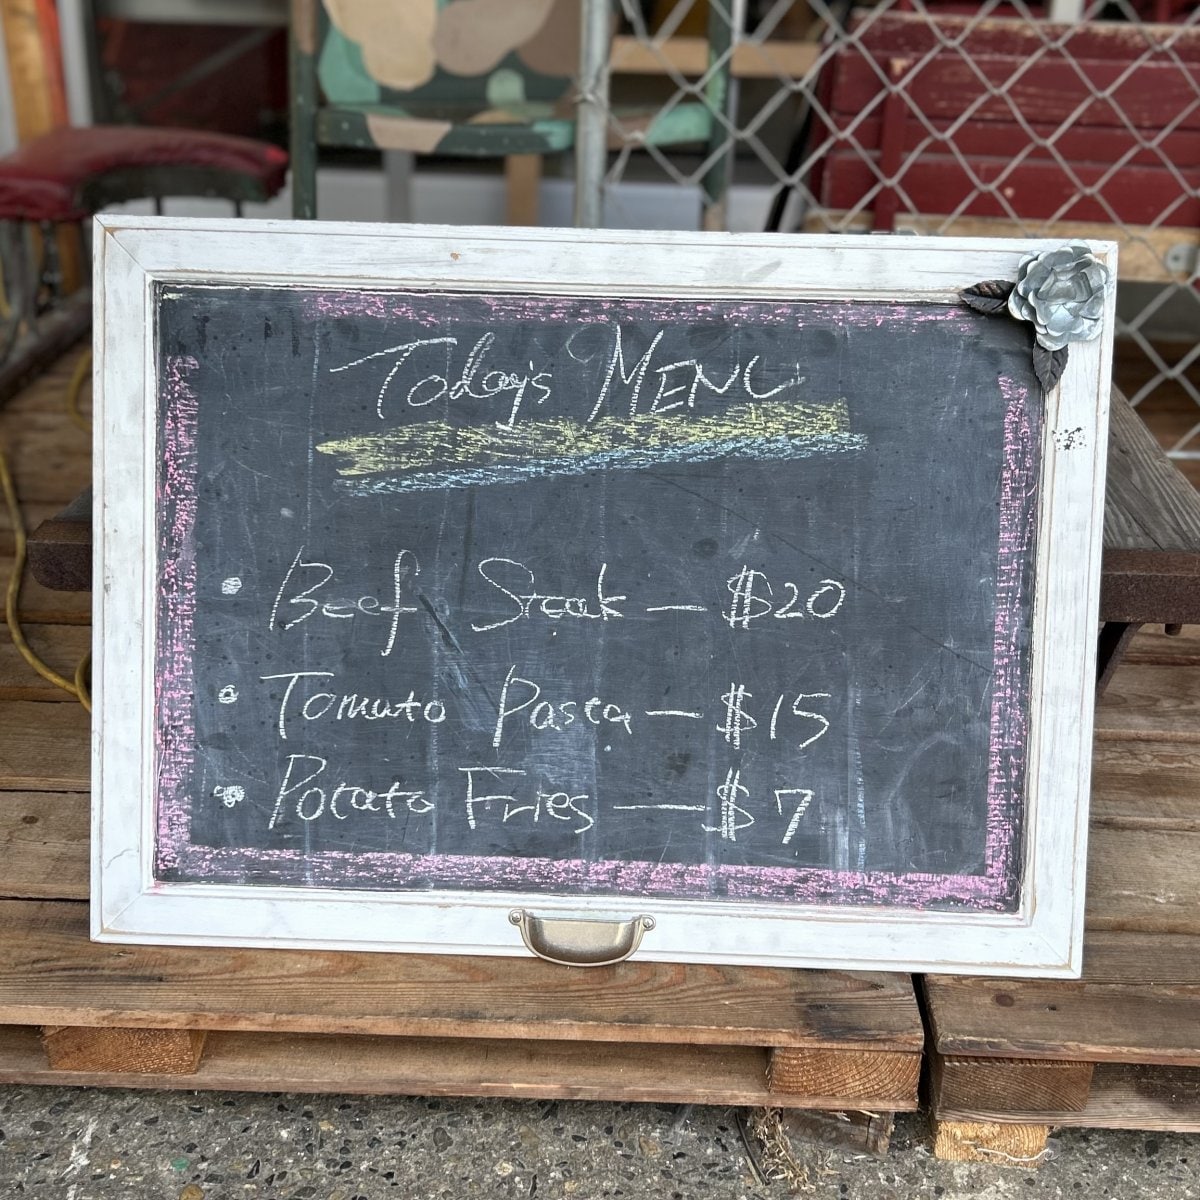 Today's MENU
• Beef Steak — $20
• Tomato Pasta — $15
• Potato Fries — $7